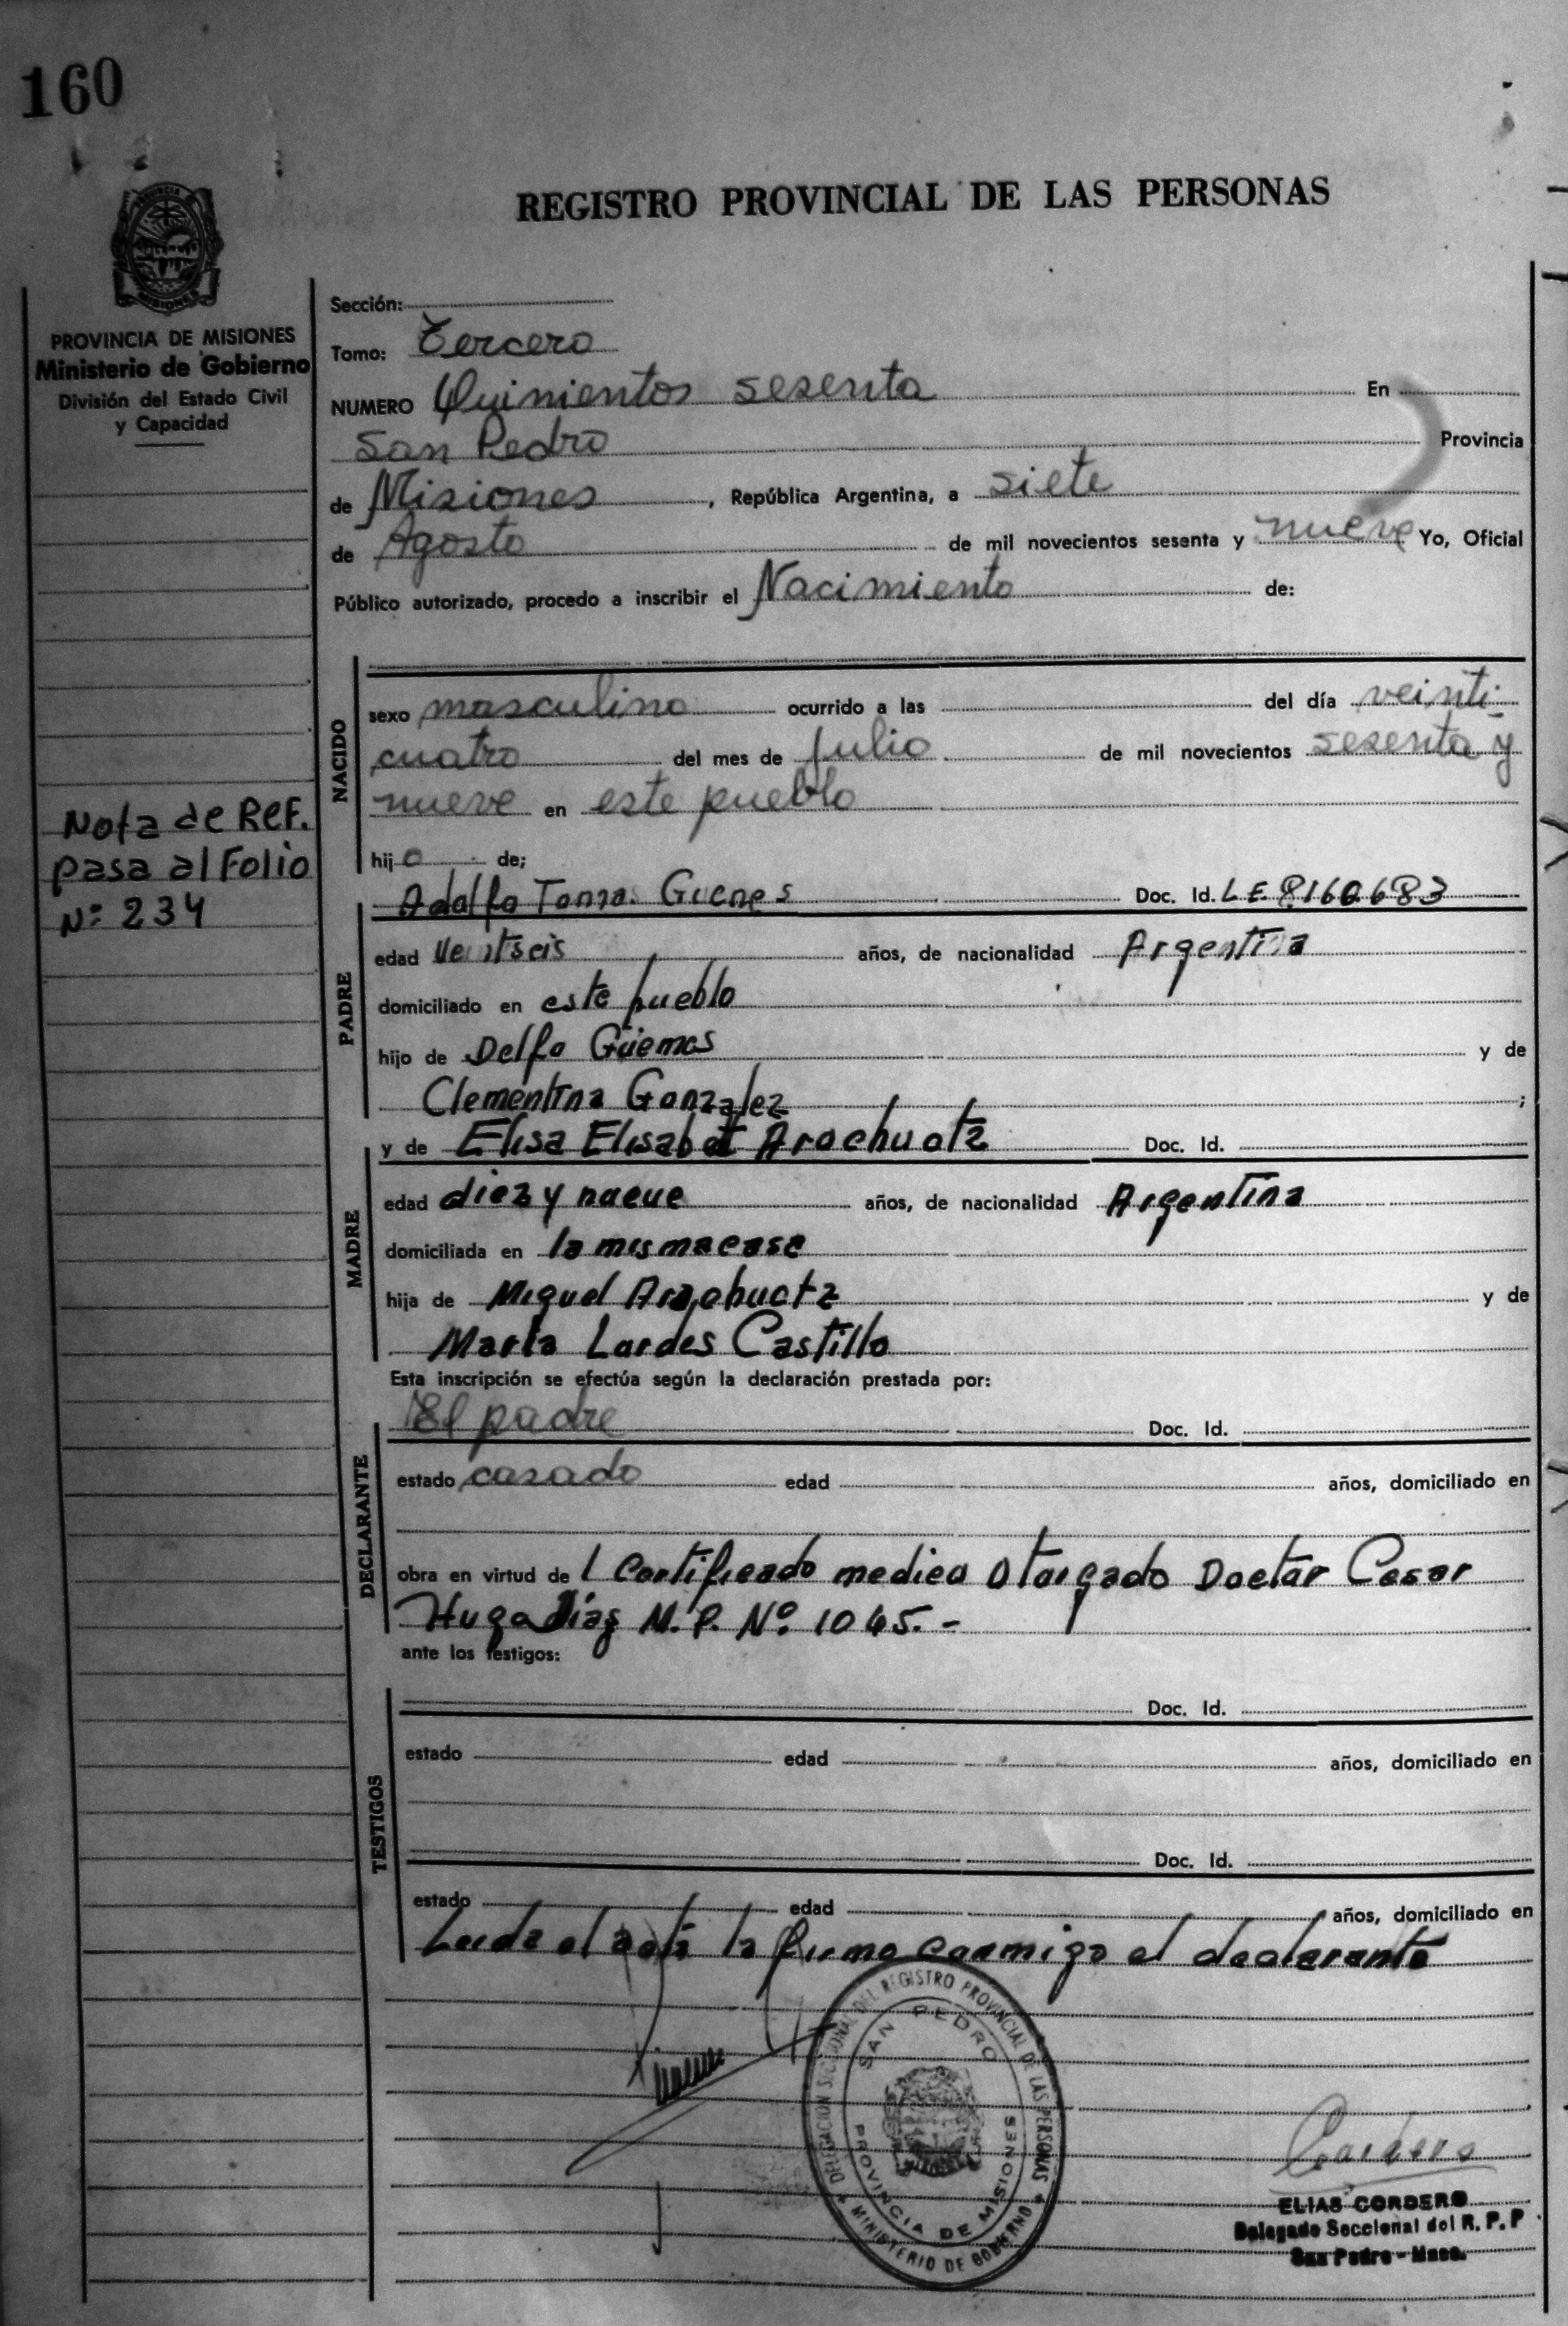 160
REGISTRO PROVINCIAL DE LAS PERSONAS
PROVINCIA DE MISIONES
Ministerio de Gobierno
División del Estado Civil
y Capacidad
Nota de Ref.
pasa al Folio
Nº 234
Sección:
Tomo: Tercero
NUMERO Quinientos sesenta En
San Pedro Provincia
de Misiones, República Argentina, a siete
de Agosto de mil novecientos sesenta y nueve Yo, Oficial
Público autorizado, procedo a inscribir el Nacimiento de:
NACIDO
sexo masculino ocurrido a las del día veinti-
cuatro del mes de Julio de mil novecientos sesenta y
nueve en este pueblo
hijo de;
Doc. Id. L E 8160683
PADRE
edad años, de nacionalidad Argentina
domiciliado en este pueblo
hijo de Delfo Güemes y de
Clementina Gonzalez ;
y de Elisa Elisabet Doc. Id.
MADRE
edad diez y nueve años, de nacionalidad Argentina
domiciliada en la misma casa
hija de Miguel y de
Maria Lurdes Castillo
Esta inscripción se efectúa según la declaración prestada por:
El padre Doc. Id.
DECLARANTE
estado casado edad años, domiciliado en
obra en virtud del Certificado medico Otorgado Doctor Cesar
Hugo Díaz M.P. Nº 1045.-
ante los testigos:
Doc. Id.
TESTIGOS
estado edad años, domiciliado en
Doc. Id.
estado edad años, domiciliado en
Leida el acta la firma conmigo el declarante
DELEGACION SECCIONAL DEL REGISTRO PROVINCIAL DE LAS PERSONAS
MINISTERIO DE GOBIERNO
SAN PEDRO
PROVINCIA DE MISIONES
ELIAS CORDERO
Delegado Seccional del R. P. P
San Pedro - Mnes.